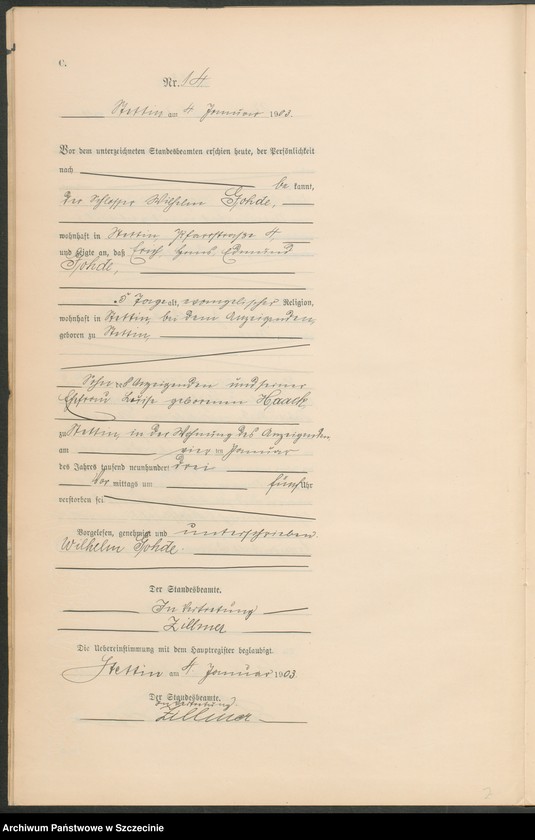 C.
Nr. 14
Stettin am 4 Januar 1903.
Vor dem unterzeichneten Standesbeamten erschien heute, der Persönlichkeit
nach
be kannt,
der Schlosser Wilhelm Gohde,
wohnhaft in Stettin Pfarrstraße 4
und zeigte an, daß Erich Hans Edmund
Gohde,
5 Tage alt, evangelischer Religion,
wohnhaft in Stettin bei dem Anzeigenden,
geboren zu Stettin,
Sohn des Anzeigenden und seiner
Ehefrau Luise geborenen Haack,
zu Stettin in der Wohnung des Anzeigenden
am vier ten Januar
des Jahrs tausend neunhundert drei
Vor mittags um fünf Uhr
verstorben sei.
Vorgelesen, genehmigt und unterschrieben
Wilhelm Gohde.
Der Standesbeamte.
In Vertretung
Zillmer
Die Uebereinstimmung mit dem Hauptregister beglaubigt.
Stettin am 4 Januar 1903
Der Standesbeamte.
In Vertretung
Zillmer
Archiwum Państwowe w Szczecinie